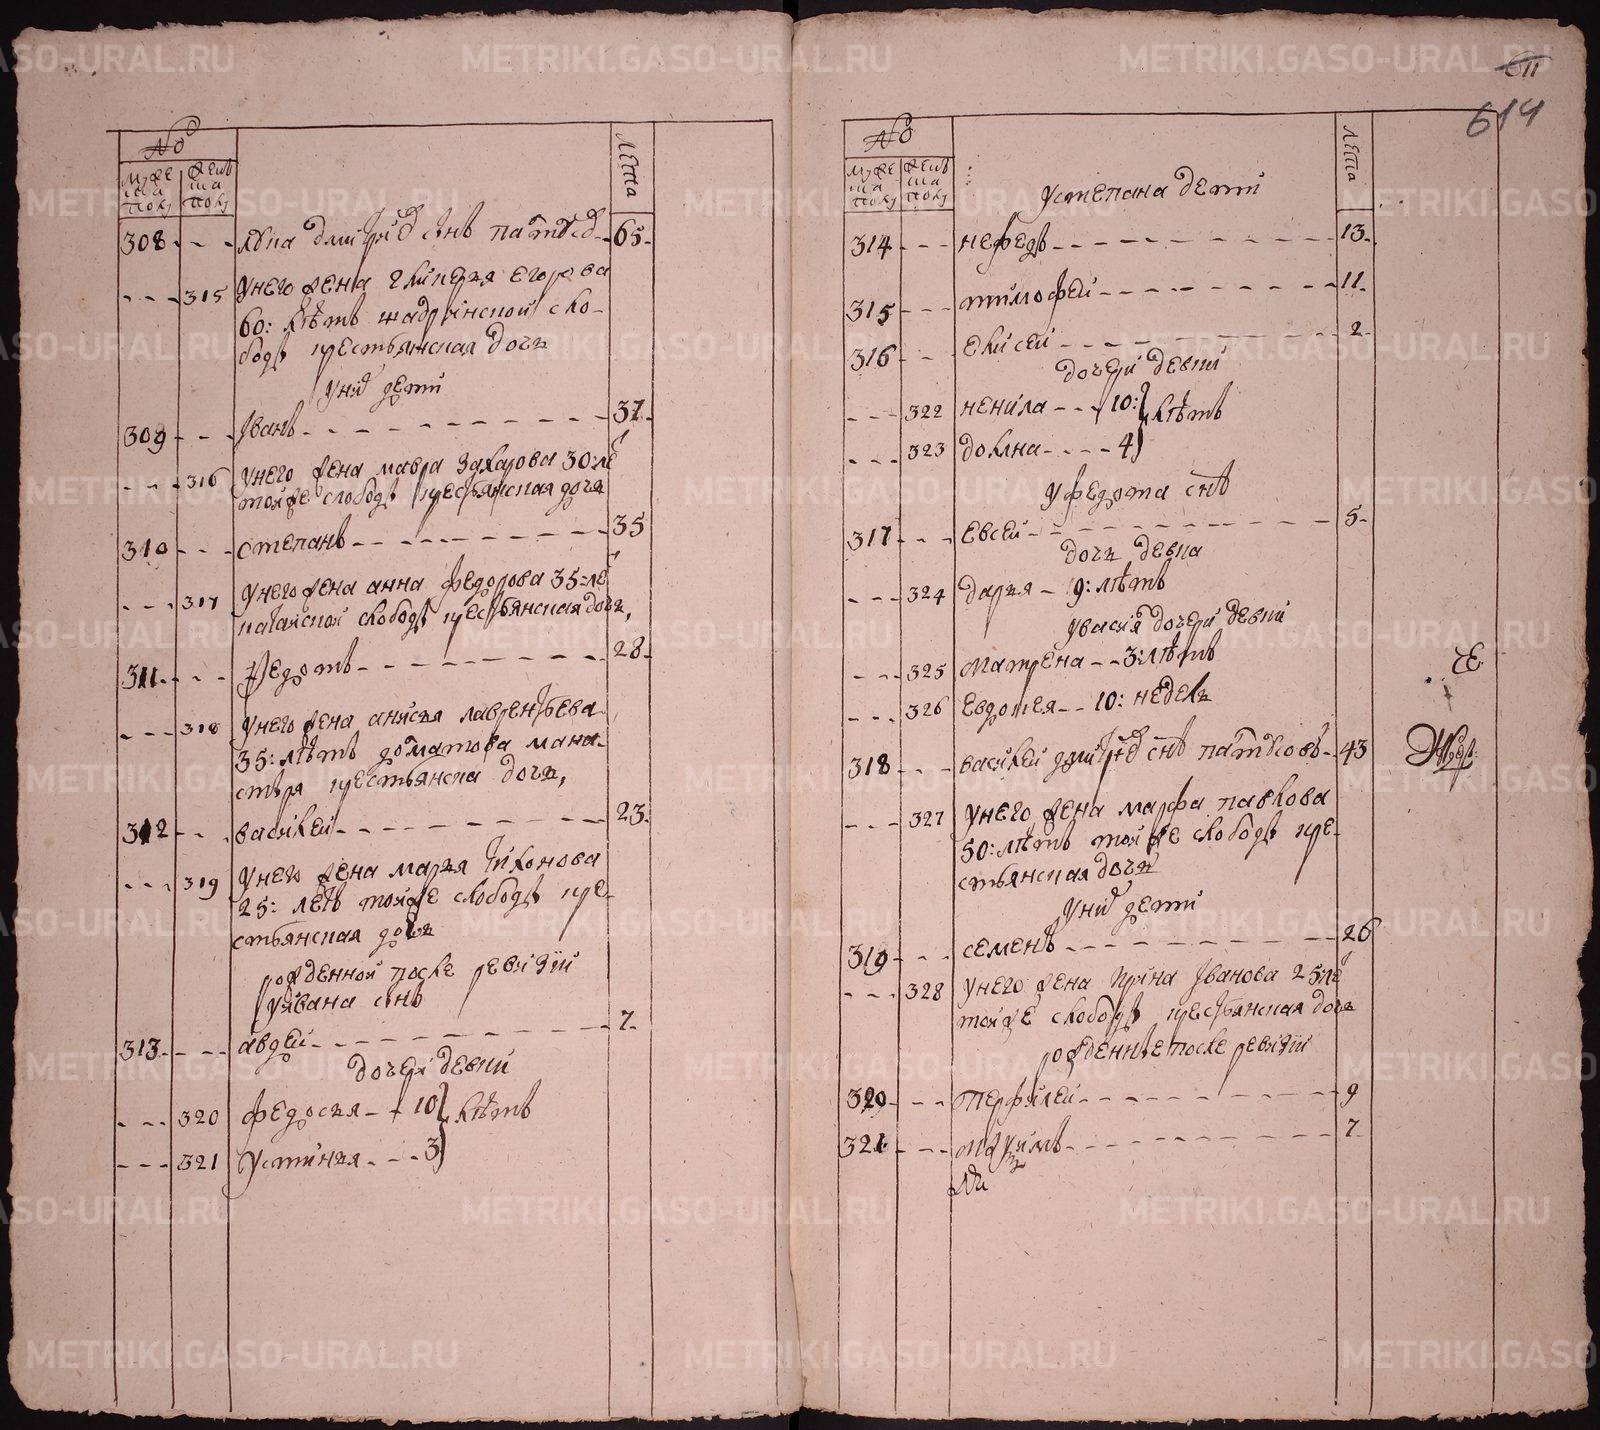 №
муже
ска
полу
женъ
ска
полу
лѣта
308 лупа дмитриев сынъ патв 65
315 унего жена гликерья егорова
60: лѣтъ шадринской сло-
бод крестьянская дочь
уних дети
309 Iванъ 37
316 унего жена мавра захарова 30: ле
тойже слободы крестьянская дочь
310 степанъ 35
317 унего жена анна федорова 35: ле
слободы крестьянская дочь,
311 Федотъ 28
318 унего жена анисья лаврентьева
35: лѣтъ долматова мана-
стыря крестьянска дочь,
312 василей 23
319 унего жена марья тихонова
25: летъ тойже слободы кре-
стьянская дочь
рожденной после ревизии
уивана сынъ
313 авдей 7
дочери девки
320 федосья 10 лѣтъ
321 устинья 3
611
614
№
муже
ска
полу
женъ
ска
полу
лѣта
устепана дети
314 нефедъ 13
315 тимофей 11
316 елисей 2
дочери девки
322 ненила 10: лѣтъ
323 домна 4
уфедота снъ
317 Евсей 5
дочь девка
324 дарья 9: лѣтъ
увасия дочери девки
325 матрена 3: лѣтъ
326 Евдокея 10: недель
318 василей дмитрев снъ 43
327 унего жена марфа павлова
50: лѣтъ тойже слободы кре-
стьянская дочь
уних дети
319 семенъ 26
328 унего жена ирина Iванова 25: ле
тойже слободы крестьянская дочь
рожденные после ревизии
320 перфилей 9
321 7